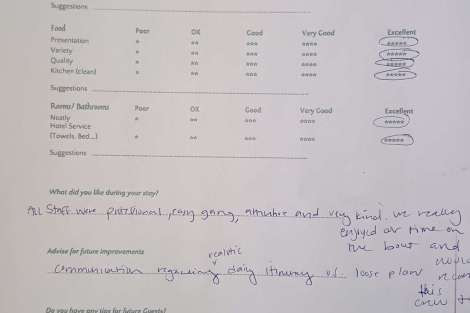 Suggestions
Food Poor OK Good Very Good Excellent
Presentation * ** *** **** *****
Variety * ** *** **** *****
Quality * ** *** **** *****
Kitchen (clean) * ** *** **** *****
Suggestions
Rooms/ Bathrooms Poor OK Good Very Good Excellent
Neatly * ** *** **** *****
Hotel Service
(Towels, Bed...) * ** *** **** *****
Suggestions
What did you like during your stay?
All Staff were proffesional, easy going, attentive and very kind. we really
enjoyed our time on
the boat and
would
recom
this
crew to
Advise for future improvements
realistic
communication regarding daily itinerary vs. loose plan
Do you have any tips for future Guests?